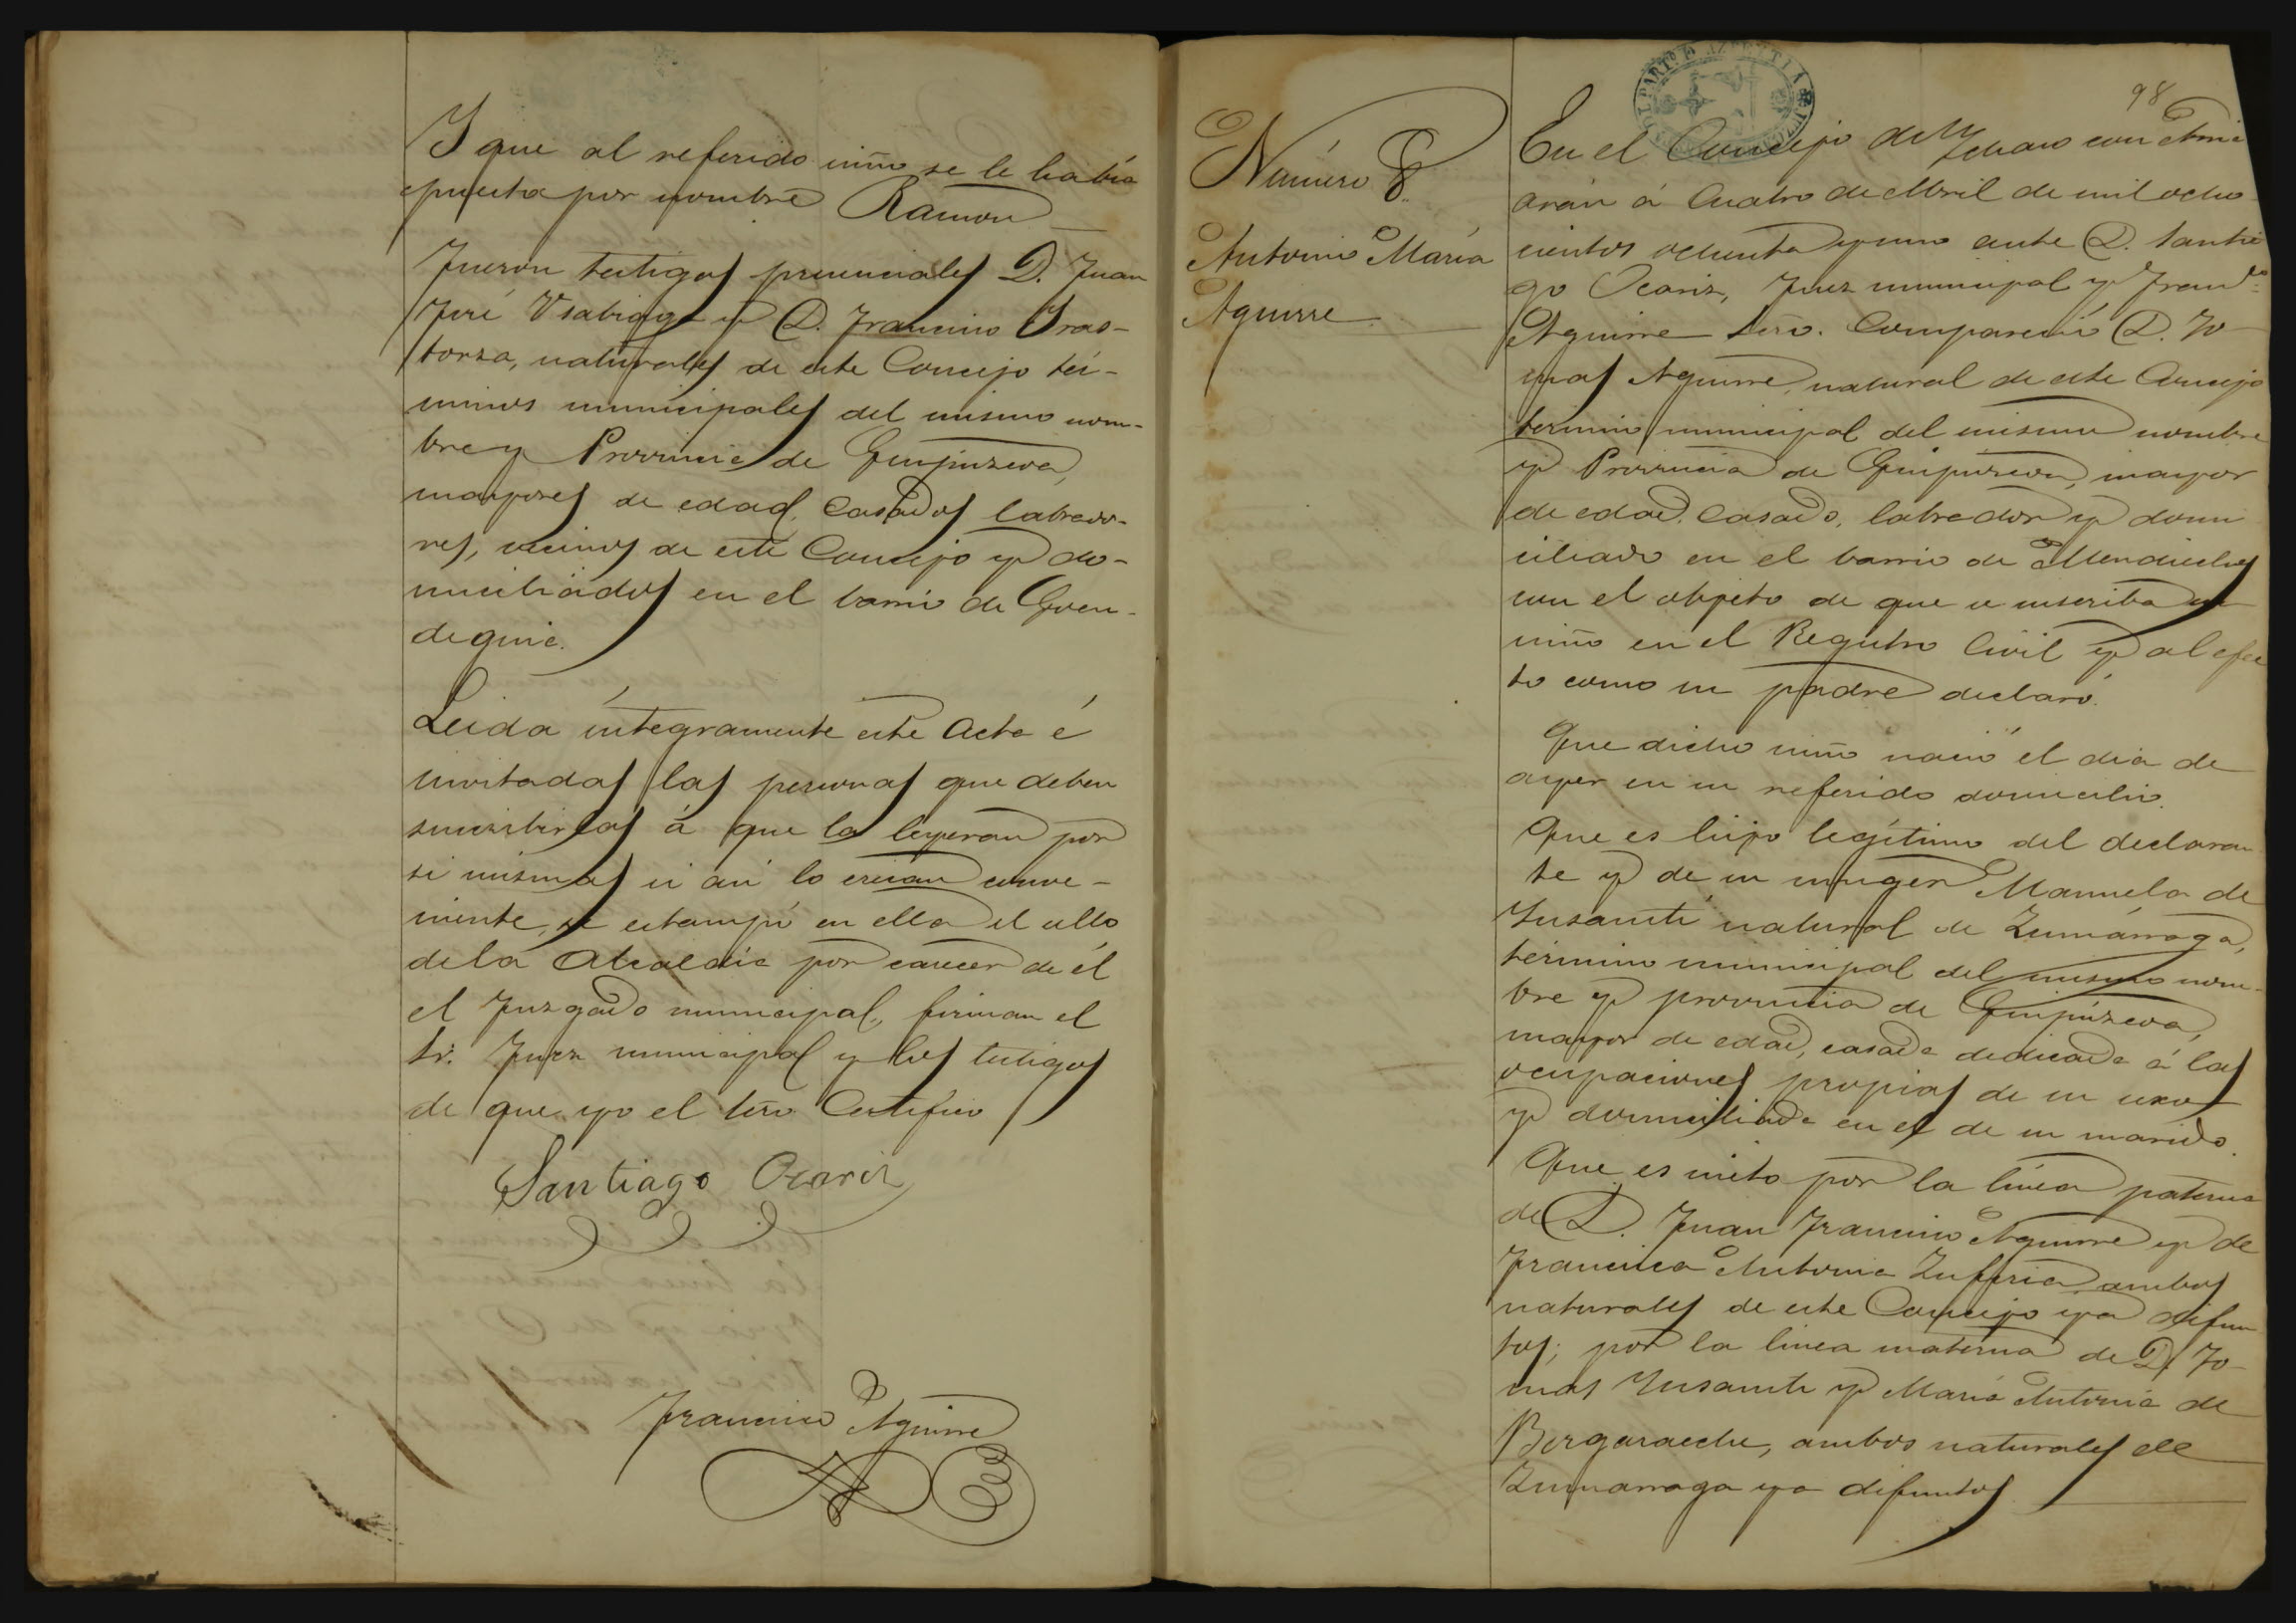 Y que al referido niño se le había
puesto por nombre Ramon
Fueron testigos presenciales D. Juan
José Usabiaga y D. Francisco Iras-
torza, naturales de este Concejo tér-
minos municipales del mismo nom-
bre y Provincia de Guipúzcoa,
mayores de edad, casados labrado-
res, vecinos de este Concejo y do-
miciliados en el barrio de Goen-
deguie.
Leida íntegramente este acta é
invitadas las personas que deben
suscribirlas á que la leyeran por
si mismas si asi lo creian conve-
niente, se estampó en ella el sello
de la Alcaldia por carecer de él
el Juzgado municipal, firman el
Sr. Juez municipal y los testigos
de que yo el Srio Certifico
Santiago Ocariz
Francisco Aguirre
98
PART.º D AZPEITIA
Número 8
Antonio María
Aguirre
En el Concejo de Ichaso con Arri
arán á Cuatro de Abril de mil ocho
cientos ochenta y uno ante D. Santia
go Ocariz, Juez municipal y Francº
Aguirre Srio. Compareció D. Jo
mas Aguirre, natural de este Concejo
termino municipal del mismo nombre
y Provincia de Guipúzcoa, mayor
de edad, casado, labrador y domi
ciliado en el barrio de
con el objeto de que se inscriba un
niño en el Registro Civil y al efec
to como su padre declaró.
Que dicho niño nació el dia de
ayer en su referido domicilio.
Que es hijo legítimo del declaran
te y de su muger Manuela de
Yusausti natural de Zumárraga,
término municipal del mismo nom-
bre y provincia de Guipúzcoa,
mayor de edad, casada dedicada á las
ocupaciones propias de su sexo
y domiciliada en el de su marido.
Que es nieto por la línea paterna
de D. Juan Francisco Aguirre y de
Francisca Antonia Zufiria ambos
naturales de este Concejo ya difun
tos; por la linea materna de D. To
mas Yusausti y Maria Antonia de
Bergaraeche, ambos naturales de
Zumarraga ya difuntos